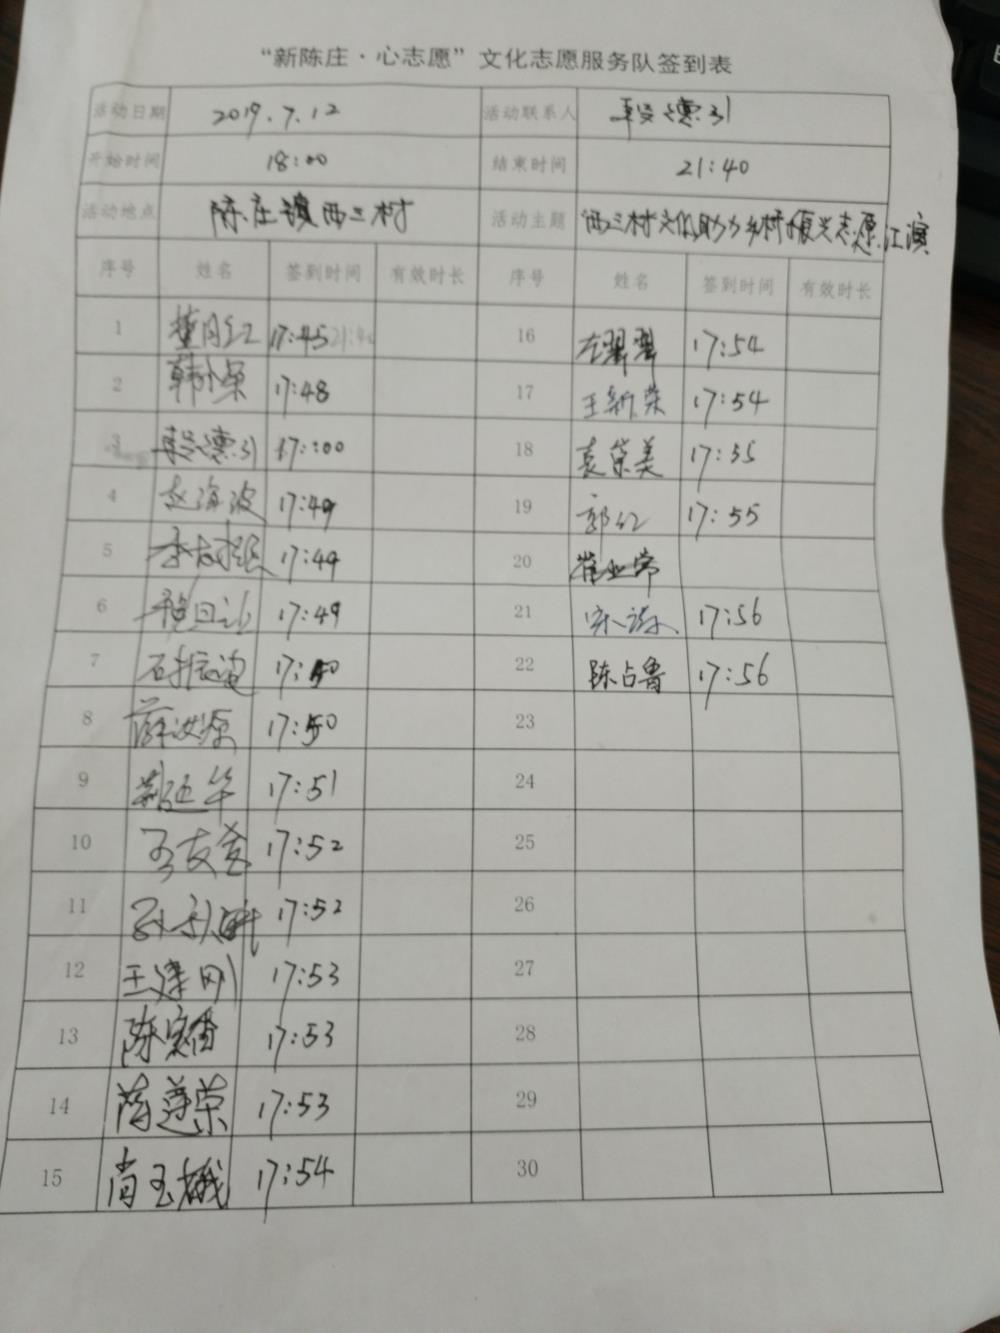 “新陈庄·心志愿”文化志愿服务队签到表
活动日期 2019.7.12 活动联系人 段德引
开始时间 18:00 结束时间 21:40
活动地点 陈庄镇西三村 活动主题 西三村文化助力乡村振兴志愿汇演
序号 姓名 签到时间 有效时长 序号 姓名 签到时间 有效时长
1 董月红 17:45 21:40 16 左翠翠 17:54
2 韩小荣 17:48 17 王新荣 17:54
3 段德引 17:00 18 袁荣美 17:55
4 赵海波 17:49 19 郭红 17:55
5 17:49 20 崔业常
6 17:49 21 17:56
7 石振波 17:50 22 陈占鲁 17:56
8 薛汝源 17:50 23
9 17:51 24
10 17:52 25
11 17:52 26
12 王建刚 17:53 27
13 17:53 28
14 17:53 29
15 肖玉娥 17:54 30